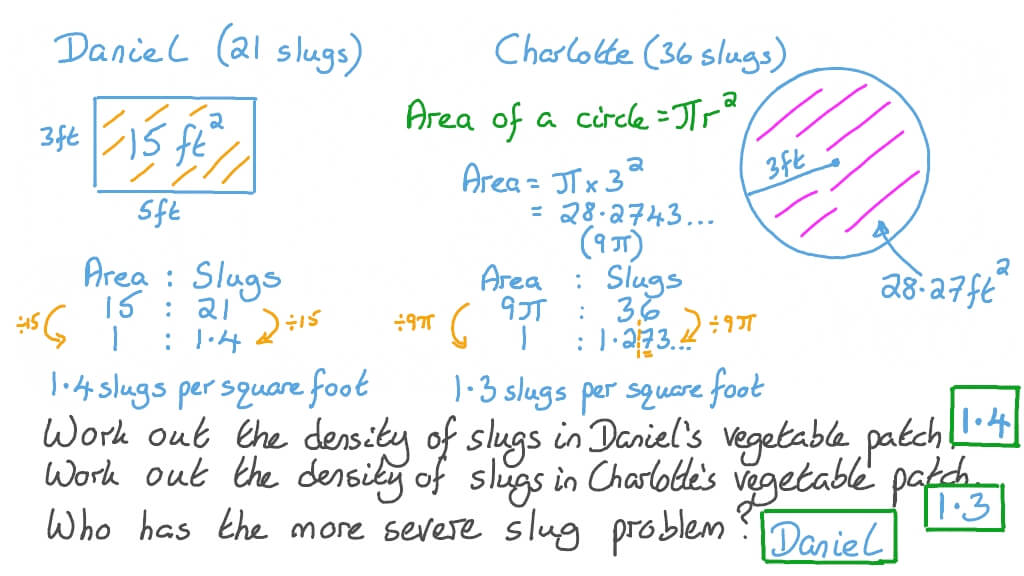 Daniel (21 slugs)
3ft
15 ft²
5ft
Area : Slugs
15 : 21
÷15
÷15
1 : 1.4
1.4 slugs per square foot
Charlotte (36 slugs)
Area of a circle = πr²
Area = π x 3²
= 28.2743...
(9π)
3ft
28.27ft²
Area : Slugs
9π : 36
÷9π
÷9π
1 : 1.273...
1.3 slugs per square foot
Work out the density of slugs in Daniel's vegetable patch. 1.4
Work out the density of slugs in Charlotte's vegetable patch. 1.3
Who has the more severe slug problem? Daniel